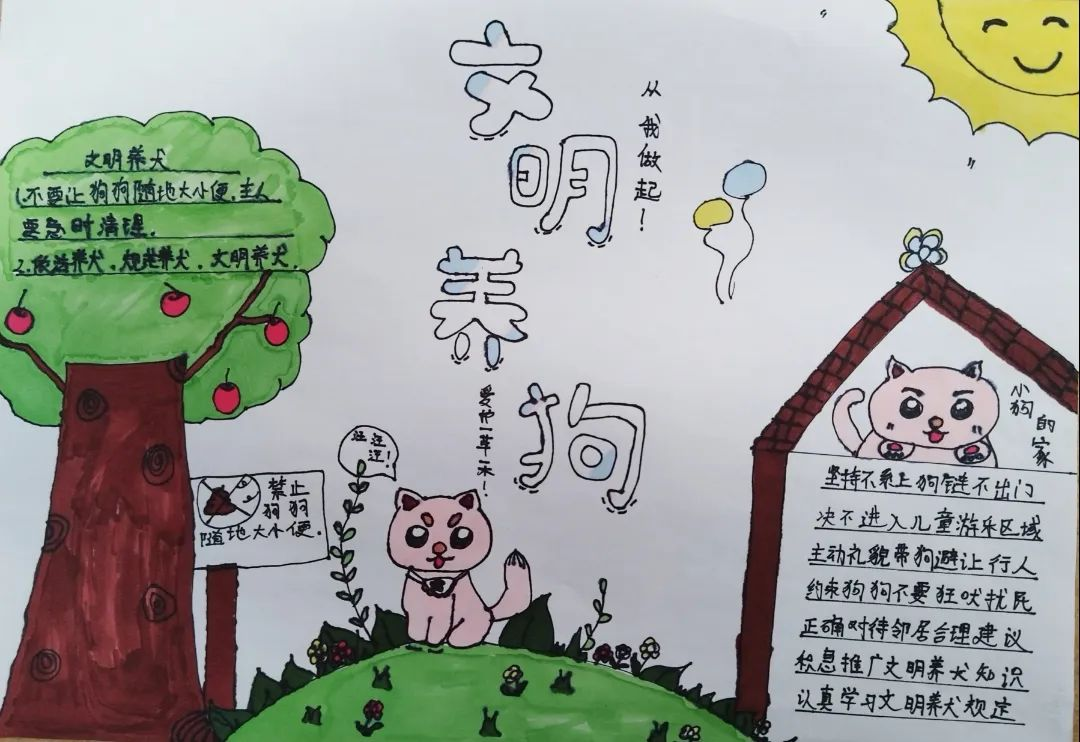 文明养狗
从我做起！
爱护一草一木！
文明养犬
1.不要让狗狗随地大小便.主人
要急时清理.
2.依法养犬.规范养犬.文明养犬.
禁止
狗狗
随地大小便.
汪汪
汪!
小狗的家
坚持不系上狗链不出门
决不进入儿童游乐区域
主动礼貌带狗避让行人
约束狗狗不要狂吠扰民
正确对待邻居合理建议
积息推广文明养犬知识
认真学习文明养犬规定